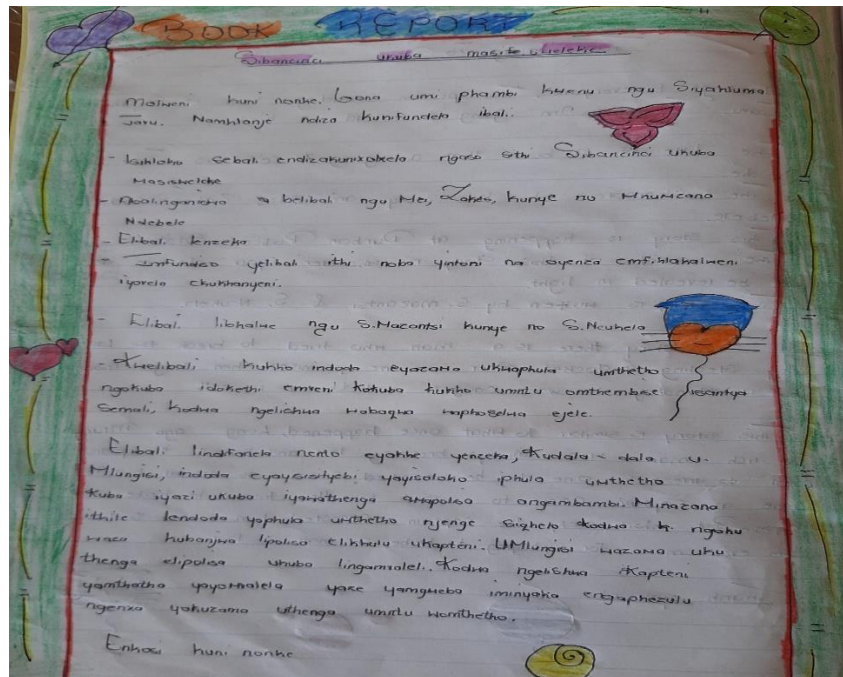 BOOK REPORT
Sibancinci ukuba masite
Molweni kuni nonke. Lona umi phambi kwenu ngu Siyahluma
Jaru. Namhlanje ndiza kunifundela ibali.
- Isihloko sebali endizakunixoxela ngaso sithi Sibancinci ukuba
- Abalinganiswa belibali ngu Me, Zakes, kunye no Mnumzana
Ndebele
- Elibali lenzeka
- Imfundiso yelibali ithi noba yintoni na oyenza emfihlakalweni
iyavela ekukhanyeni.
- Elibali libhalwe ngu S.Macontsi kunye no S.Neukela
- Kwelibali kukho indoda eyazama ukwaphula umthetho
ngokuba idokethi emveni kokuba kukho umntu omthembise isantya
Semali, kodwa ngelishwa wabaqwa waphoselwa ejele.
Elibali lindifanela nento eyakhe yenzeka, Kudala-dala u.
Mlungisi, indoda eyayisisityebi yayisoloko iphula umthetho
kuba iyazi ukuba iyawathenga amapolisa angambambi. Minazana
ithile lendoda yaphula umthetho njenge sizhelo kodwa k ngoku
waza kubanjwa lipolisa elikhulu ukapteni. UMlungisi wazama uku
thenga elipolisa ukuba lingamvaleli. Kodwa ngelishwa iKapteni
yamthatha yayomvalela yaze yamgweba iminyaka engaphezulu
ngenxa yokuzama uthenga umntu womthetho.
Enkosi kuni nonke